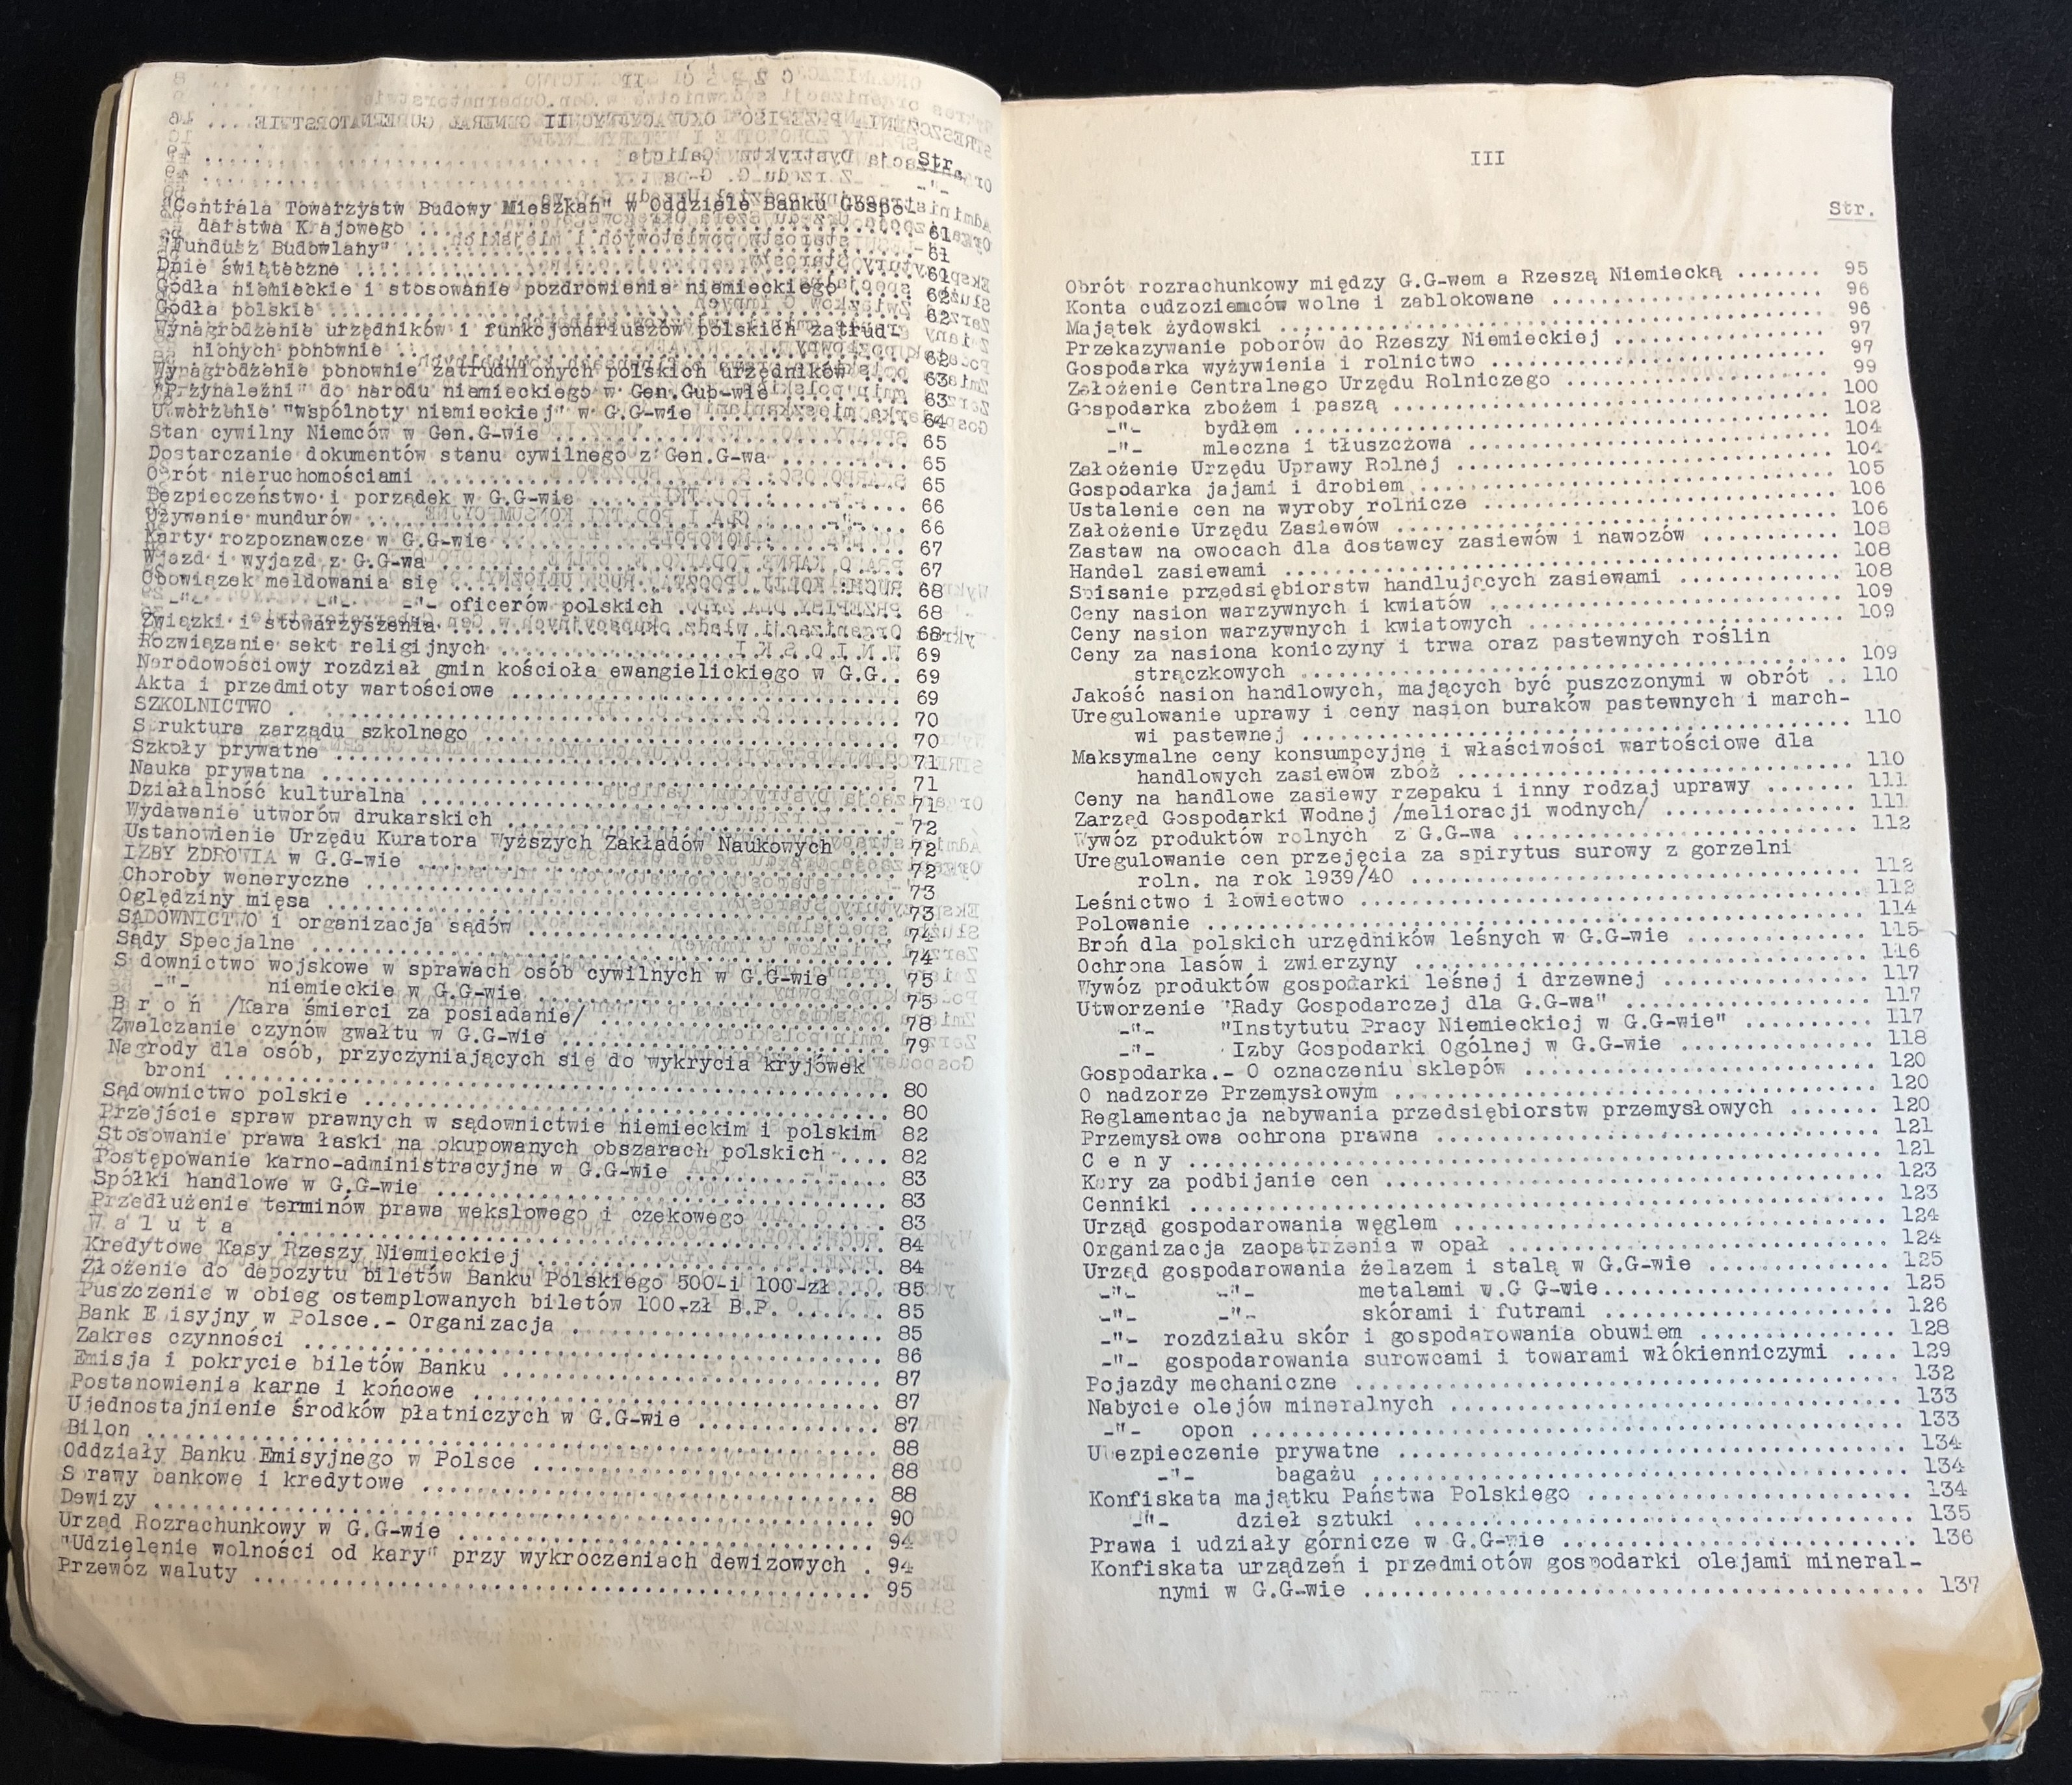 II
Str.
"Centrala Towarzystw Budowy Mieszkań" w Oddziele Banku Gospo-
darstwa Krajowego .......... 61
"Fundusz Budowlany" .......... 61
Dnie świąteczne .......... 61
Godła niemieckie i stosowanie pozdrowienia niemieckiego .......... 62
Godła polskie .......... 62
Wynagrodzenie urzędników i funkcjonariuszów polskich zatrud-
nionych ponownie .......... 62
Wynagrodzenie ponownie zatrudnionych polskich urzędników .......... 63
"Przynależni" do narodu niemieckiego w Gen.Gub-wie .......... 63
Utworzenie "wspólnoty niemieckiej" w G.G-wie .......... 64
Stan cywilny Niemców w Gen.G-wie .......... 65
Dostarczanie dokumentów stanu cywilnego z Gen.G-wa .......... 65
Obrót nieruchomościami .......... 65
Bezpieczeństwo i porządek w G.G-wie .......... 66
Używanie mundurów .......... 66
Karty rozpoznawcze w G.G-wie .......... 67
Wjazd i wyjazd z G.G-wa .......... 67
Obowiązek meldowania się .......... 68
-"- -"- -"- oficerów polskich .......... 68
Związki i stowarzyszenia .......... 68
Rozwiązanie sekt religijnych .......... 69
Narodowościowy rozdział gmin kościoła ewangielickiego w G.G.. 69
Akta i przedmioty wartościowe .......... 69
SZKOLNICTWO .......... 70
Struktura zarządu szkolnego .......... 70
Szkoły prywatne .......... 71
Nauka prywatna .......... 71
Działalność kulturalna .......... 71
Wydawanie utworów drukarskich .......... 72
Ustanowienie Urzędu Kuratora Wyższych Zakładów Naukowych .... 72
IZBY ZDROWIA w G.G-wie .......... 72
Choroby weneryczne .......... 73
Oględziny mięsa .......... 73
SĄDOWNICTWO i organizacja sądów .......... 74
Sądy Specjalne .......... 74
S downictwo wojskowe w sprawach osób cywilnych w G.G-wie .... 75
-"- niemieckie w G.G-wie .......... 75
B r o ń /Kara śmierci za posiadanie/ .......... 78
Zwalczanie czynów gwałtu w G.G-wie .......... 79
Nagrody dla osób, przyczyniających się do wykrycia kryjówek
broni .......... 80
Sądownictwo polskie .......... 80
Przejście spraw prawnych w sądownictwie niemieckim i polskim 82
Stosowanie prawa łaski na okupowanych obszarach polskich .... 82
Postępowanie karno-administracyjne w G.G-wie .......... 83
Spółki handlowe w G.G-wie .......... 83
Przedłużenie terminów prawa wekslowego i czekowego .......... 83
W a l u t a .......... 84
Kredytowe Kasy Rzeszy Niemieckiej .......... 84
Złożenie do depozytu biletów Banku Polskiego 500-i 100-zł .... 85
Puszczenie w obieg ostemplowanych biletów 100,-zł B.P. ...... 85
Bank E isyjny w Polsce.- Organizacja .......... 85
Zakres czynności .......... 86
Emisja i pokrycie biletów Banku .......... 87
Postanowienia karne i końcowe .......... 87
Ujednostajnienie środków płatniczych w G.G-wie .......... 87
Bilon .......... 88
Oddziały Banku Emisyjnego w Polsce .......... 88
S rawy bankowe i kredytowe .......... 88
Dewizy .......... 90
Urząd Rozrachunkowy w G.G-wie .......... 94
"Udzielenie wolności od kary" przy wykroczeniach dewizowych . 94
Przewóz waluty .......... 95
III
Str.
Obrót rozrachunkowy między G.G-wem a Rzeszą Niemiecką ....... 95
Konta cudzoziemców wolne i zablokowane .......... 96
Majątek żydowski .......... 96
Przekazywanie poborów do Rzeszy Niemieckiej .......... 97
Gospodarka wyżywienia i rolnictwo .......... 97
Założenie Centralnego Urzędu Rolniczego .......... 99
Gospodarka zbożem i paszą .......... 100
-"- bydłem .......... 102
-"- mleczna i tłuszczowa .......... 104
Założenie Urzędu Uprawy Rolnej .......... 104
Gospodarka jajami i drobiem .......... 105
Ustalenie cen na wyroby rolnicze .......... 106
Założenie Urzędu Zasiewów .......... 106
Zastaw na owocach dla dostawcy zasiewów i nawozów .......... 108
Handel zasiewami .......... 108
Spisanie przedsiębiorstw handlujących zasiewami .......... 108
Ceny nasion warzywnych i kwiatów .......... 109
Ceny nasion warzywnych i kwiatowych .......... 109
Ceny za nasiona koniczyny i trwa oraz pastewnych roślin
strączkowych .......... 109
Jakość nasion handlowych, mających być puszczonymi w obrót .. 110
Uregulowanie uprawy i ceny nasion buraków pastewnych i march-
wi pastewnej .......... 110
Maksymalne ceny konsumpcyjne i właściwości wartościowe dla
handlowych zasiewów zbóż .......... 110
Ceny na handlowe zasiewy rzepaku i inny rodzaj uprawy ....... 111
Zarząd Gospodarki Wodnej /melioracji wodnych/ .......... 111
Wywóz produktów rolnych z G.G-wa .......... 112
Uregulowanie cen przejęcia za spirytus surowy z gorzelni
roln. na rok 1939/40 .......... 112
Leśnictwo i łowiectwo .......... 112
Polowanie .......... 114
Broń dla polskich urzędników leśnych w G.G-wie .......... 115
Ochrona lasów i zwierzyny .......... 116
Wywóz produktów gospodarki leśnej i drzewnej .......... 117
Utworzenie "Rady Gospodarczej dla G.G-wa" .......... 117
-"- "Instytutu Pracy Niemieckiej w G.G-wie" .......... 117
-"- Izby Gospodarki Ogólnej w G.G-wie .......... 118
Gospodarka.- O oznaczeniu sklepów .......... 120
O nadzorze Przemysłowym .......... 120
Reglamentacja nabywania przedsiębiorstw przemysłowych ....... 120
Przemysłowa ochrona prawna .......... 121
C e n y .......... 121
Kary za podbijanie cen .......... 123
Cenniki .......... 123
Urząd gospodarowania węglem .......... 124
Organizacja zaopatrzenia w opał .......... 124
Urząd gospodarowania żelazem i stalą w G.G-wie .......... 125
-"- -"- metalami w.G G-wie.......... 125
-"- -"- skórami i futrami .......... 126
-"- rozdziału skór i gospodarowania obuwiem .......... 128
-"- gospodarowania surowcami i towarami włókienniczymi .... 129
Pojazdy mechaniczne .......... 132
Nabycie olejów mineralnych .......... 133
-"- opon .......... 133
Ubezpieczenie prywatne .......... 134
-"- bagażu .......... 134
Konfiskata majątku Państwa Polskiego .......... 134
-"- dzieł sztuki .......... 135
Prawa i udziały górnicze w G.G-wie .......... 136
Konfiskata urządzeń i przedmiotów gospodarki olejami mineral-
nymi w G.G-wie .......... 137